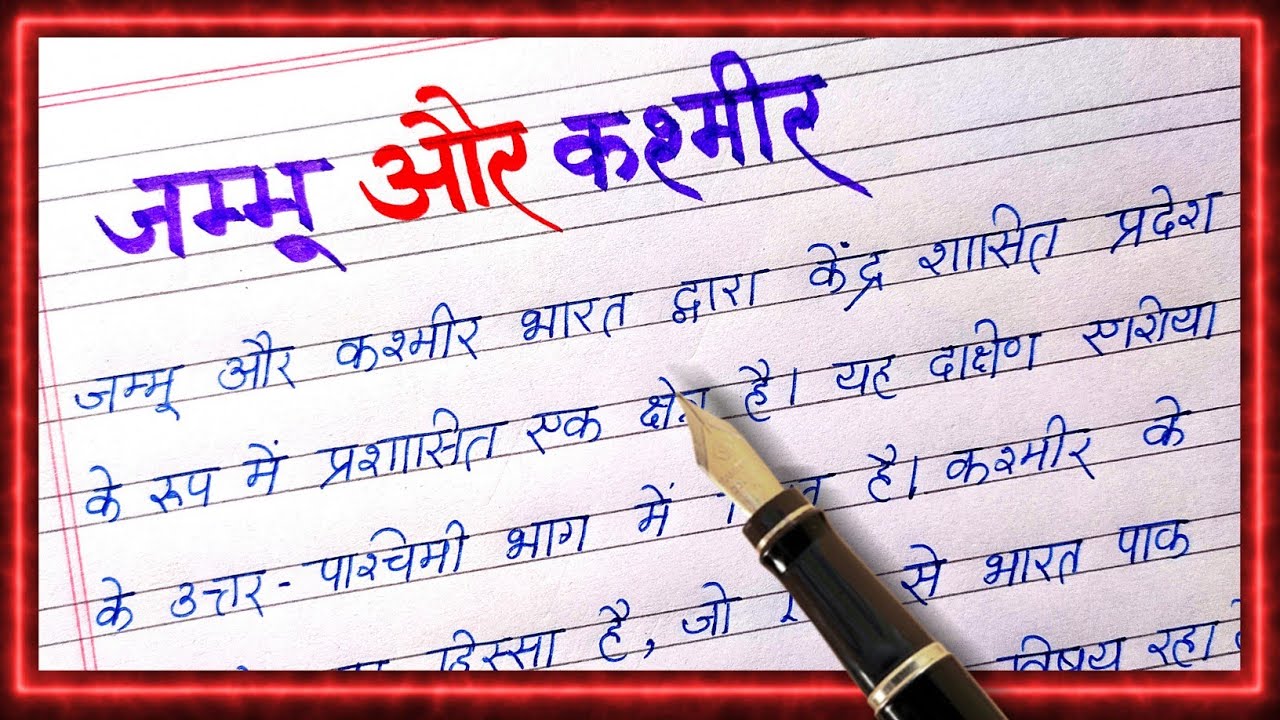 जम्मू और कश्मीर
जम्मू और कश्मीर भारत द्वारा केंद्र शासित प्रदेश
के रूप में प्रशासित एक है। यह दक्षिण एशिया
के उत्तर-पश्चिमी भाग में है। कश्मीर के
हिस्सा है, जो से भारत पाक
विषय रहा